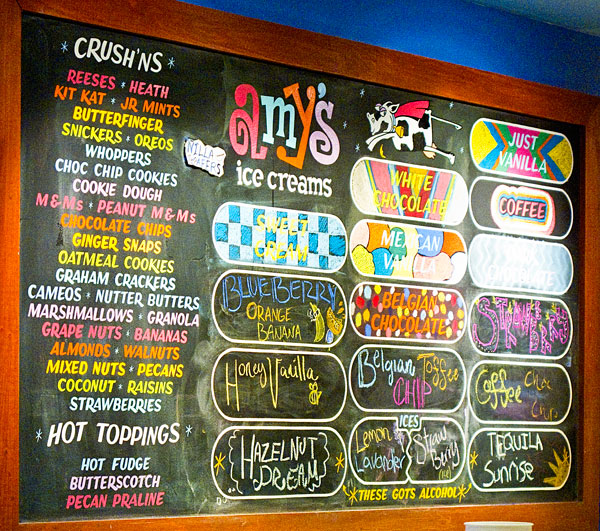 * CRUSH'NS *
REESES * HEATH
KIT KAT * JR MINTS
BUTTERFINGER
SNICKERS * OREOS
WHOPPERS
CHOC CHIP COOKIES
COOKIE DOUGH
M&Ms * PEANUT M&Ms
CHOCOLATE CHIPS
GINGER SNAPS
OATMEAL COOKIES
GRAHAM CRACKERS
CAMEOS * NUTTER BUTTERS
MARSHMALLOWS * GRANOLA
GRAPE NUTS * BANANAS
ALMONDS * WALNUTS
MIXED NUTS * PECANS
COCONUT * RAISINS
STRAWBERRIES
* HOT TOPPINGS *
HOT FUDGE
BUTTERSCOTCH
PECAN PRALINE
NILLA
WAFERS
amy's
ice creams
SWEET
CREAM
BLUEBERRY
ORANGE
BANANA
Honey Vanilla
HAZELNUT
DREAM
WHITE
CHOCOLATE
MEXICAN
VANILLA
BELGIAN
CHOCOLATE
Belgian Toffee
CHIP
ICES
Lemon
Lavender
Straw
Berry
*THESE GOTS ALCOHOL*
JUST
VANILLA
COFFEE
DARK
CHOCOLATE
Coffee Choc
Chip
TEQUILA
Sunrise